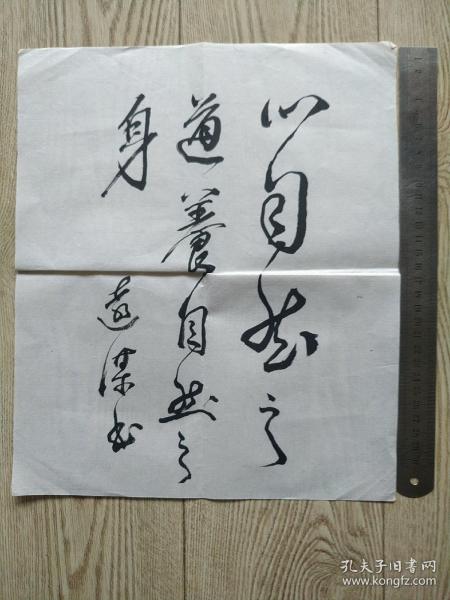 以自然之
道養自然之
身
遠謀书
孔夫子旧书网
www.kongfz.com